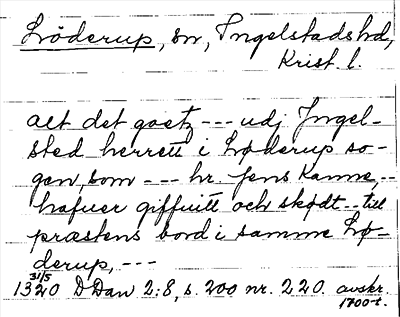 Löderup, sn, Ingelstads hd,
Krist. l.
alt det goetz --- udj Ingel-
sted herrett i Løderup so-
gen, som --- hr. Jens Kanne, --
hafuer giffuitt och skødt -- till
præstens bord i samme Lø-
derup, ---
31/5
1320 DDan 2:8, s. 200 nr. 220. avskr.
1700-t.